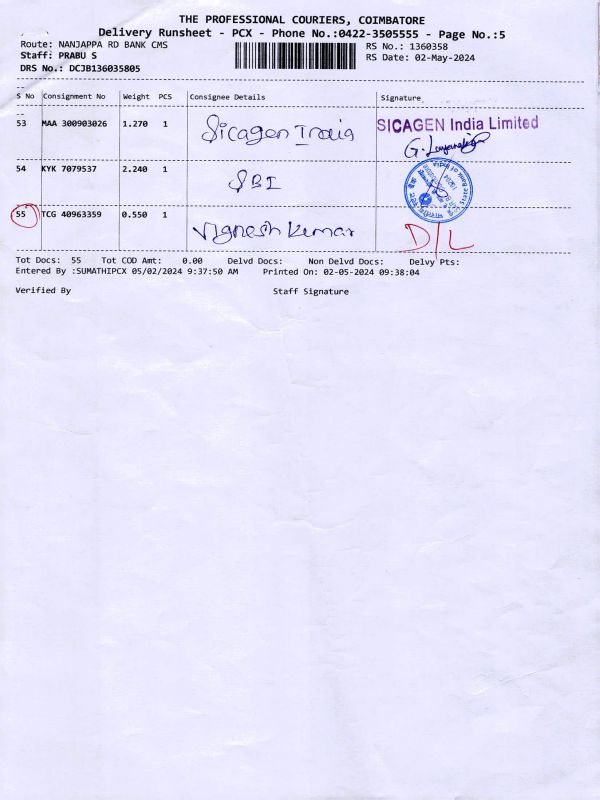 THE PROFESSIONAL COURIERS, COIMBATORE
Delivery Runsheet - PCX - Phone No.:0422-3505555 - Page No.:5
Route: NANJAPPA RD BANK CMS
RS No.: 1360358
Staff: PRABU S
RS Date: 02-May-2024
DRS No.: DCJB136035805
S No Consignment No Weight PCS Consignee Details Signature
53 MAA 300903026 1.270 1 Sicagen India SICAGEN India Limited
54 KYK 7079537 2.240 1 SBI
State Bank of India
55 TCG 40963359 0.550 1 Vignesh Kumar D/L
Tot Docs: 55 Tot COD Amt: 0.00 Delvd Docs: Non Delvd Docs: Delvy Pts:
Entered By :SUMATHIPCX 05/02/2024 9:37:50 AM Printed On: 02-05-2024 09:38:04
Verified By Staff Signature